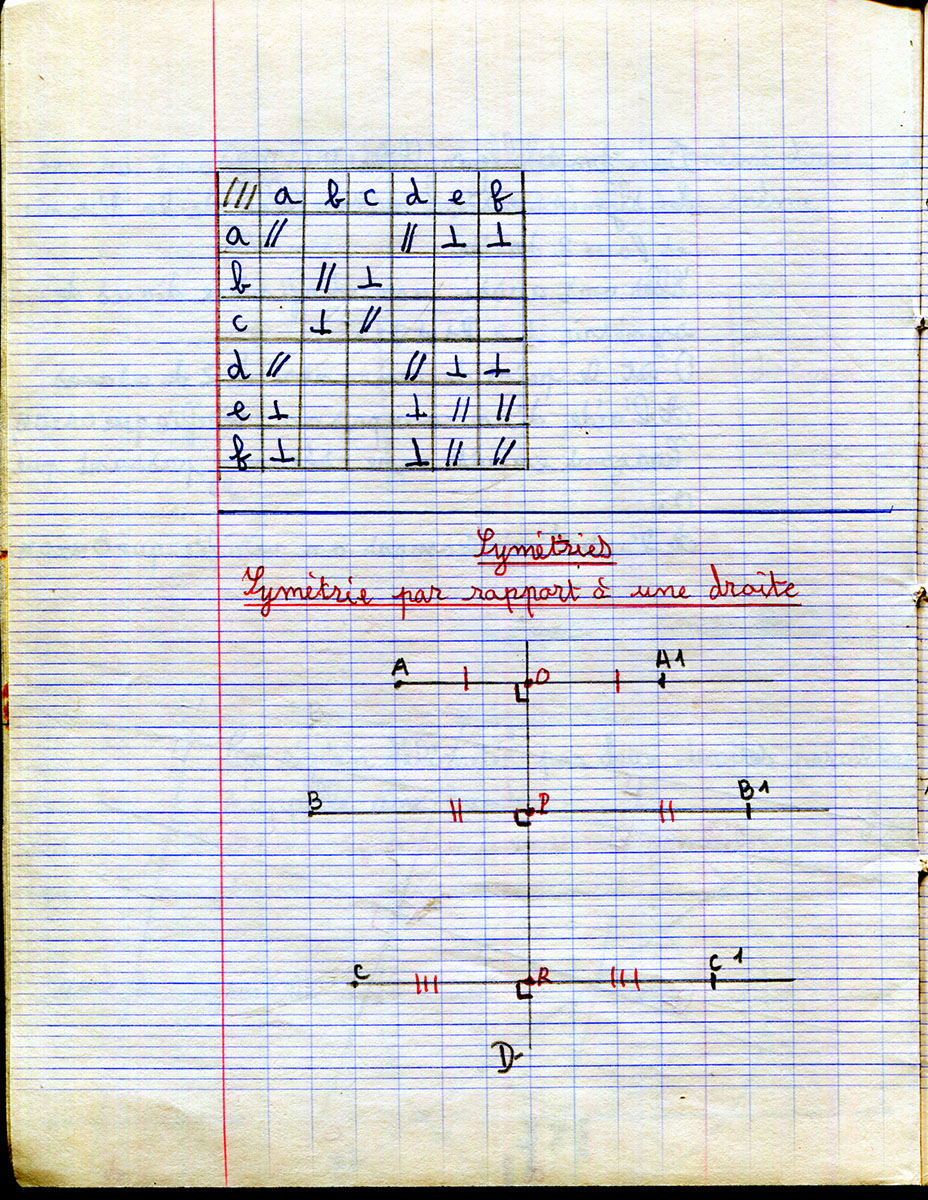 /// a b c d e f
a // // ⊥ ⊥
b // ⊥
c ⊥ //
d // // ⊥ ⊥
e ⊥ ⊥ // //
f ⊥ ⊥ // //
Symétries
Symètrie par rapport à une droite
A O A1
B P B1
C R C1
D